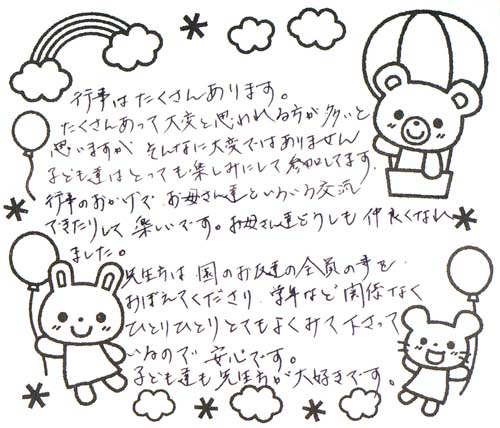 行事はたくさんあります。
たくさんあって大変と思われる方が多いと
思いますが そんなに大変ではありません
子ども達はとっても楽しみにして参加してます.
行事のおかげで お母さん達といろいろ交流
できたりして 楽しいです。お母さん達どうしも 仲良くなれ
ました。
先生方は 園のお友達の全員の事を
おぼえてくださり 学年など関係なく
ひとりひとりとてもよくみて下さって
いるので 安心です。
子ども達も先生方が大好きです。